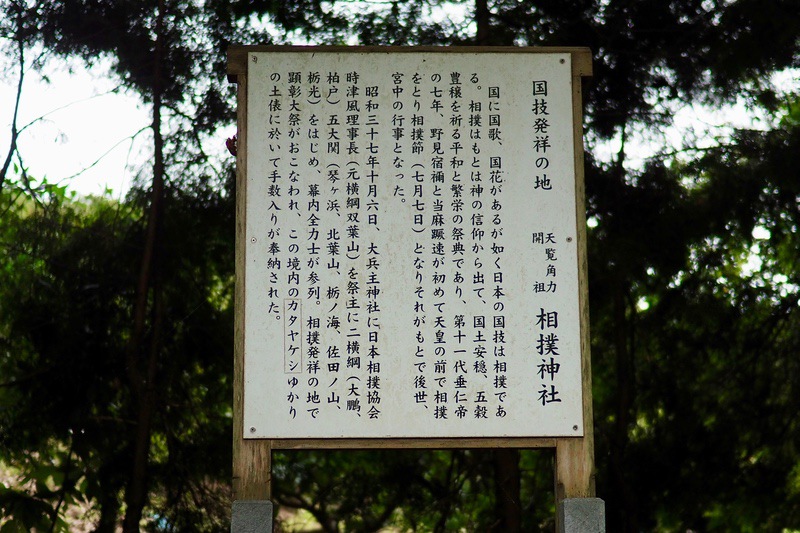 国技発祥の地
天覧角力
開祖
相撲神社
国に国歌、国花があるが如く日本の国技は相撲であ
る。相撲はもとは神の信仰から出て、国土安穏、五穀
豊穣を祈る平和と繁栄の祭典であり、第十一代垂仁帝
の七年、野見宿禰と当麻蹶速が初めて天皇の前で相撲
をとり相撲節(七月七日)となりそれがもとで後世、
宮中の行事となった。
昭和三十七年十月六日、大兵主神社に日本相撲協会
時津風理事長(元横綱双葉山)を祭主に二横綱(大鵬、
柏戸)五大関(琴ヶ浜、北葉山、栃ノ海、佐田ノ山、
栃光)をはじめ、幕内全力士が参列。相撲発祥の地で
顕彰大祭がおこなわれ、この境内のカタヤケシゆかり
の土俵に於いて手数入りが奉納された。